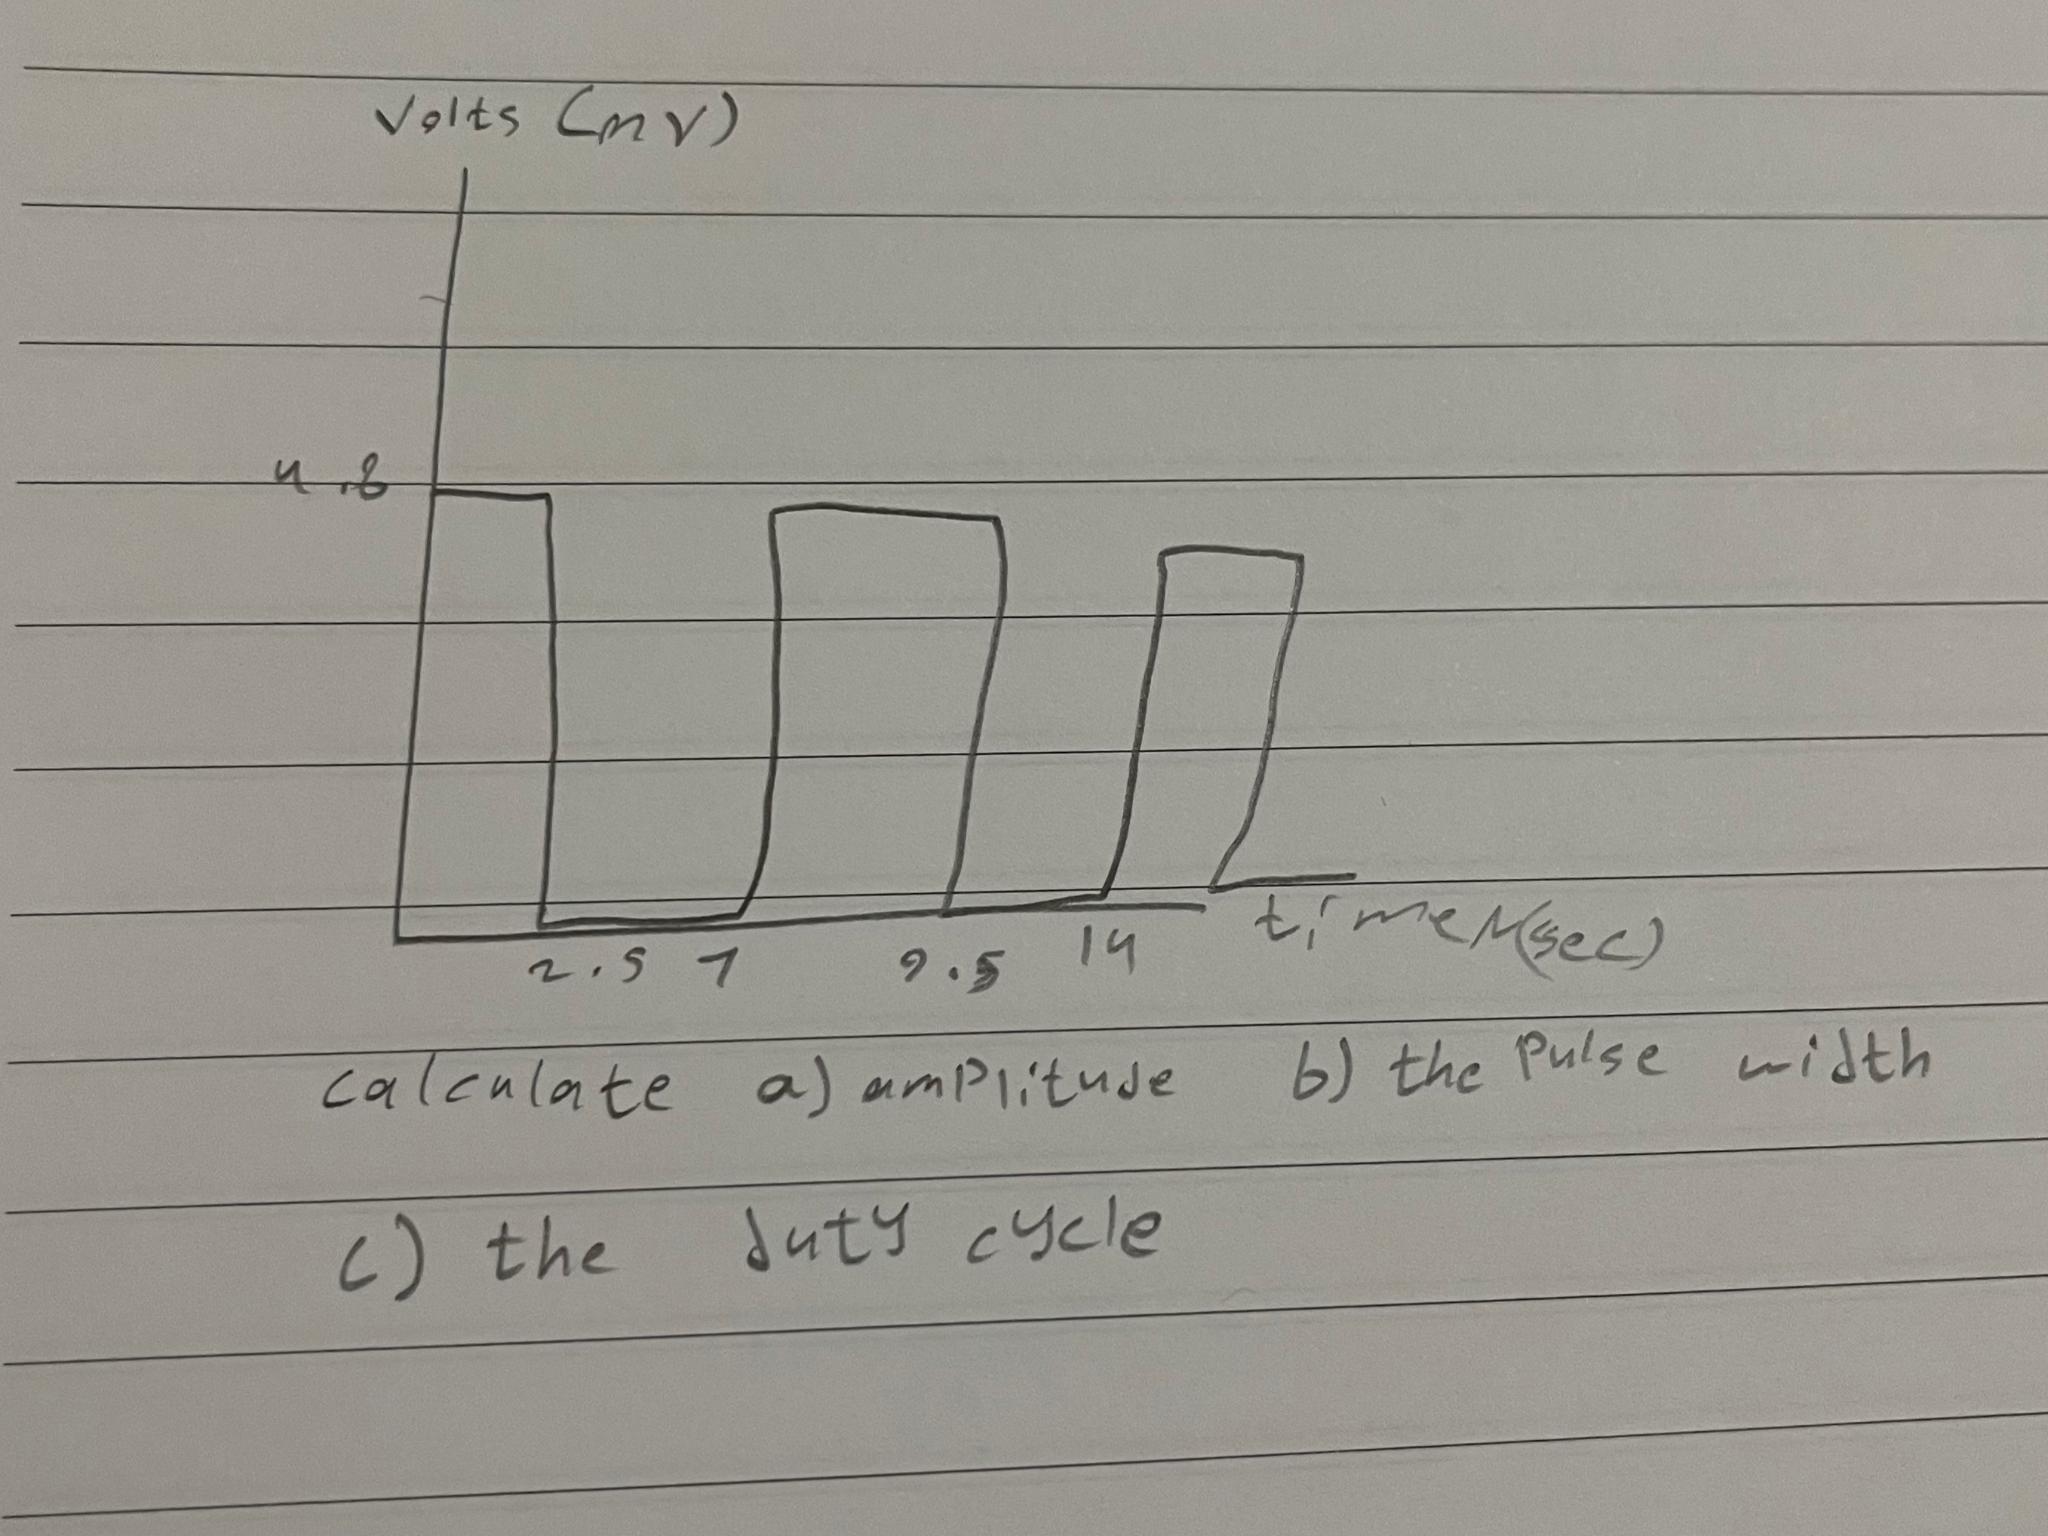 Volts (mV)
4.8
2.5 7 9.5 14 time M(sec)
calculate a) amplitude b) the Pulse width
c) the duty cycle